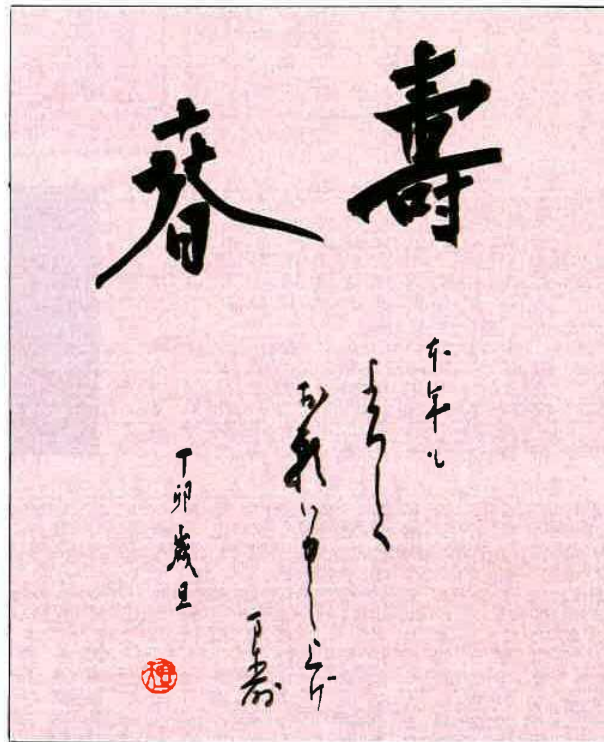 壽春
本年も
よろしく
お願い申し上げ
ます
丁卯歳旦